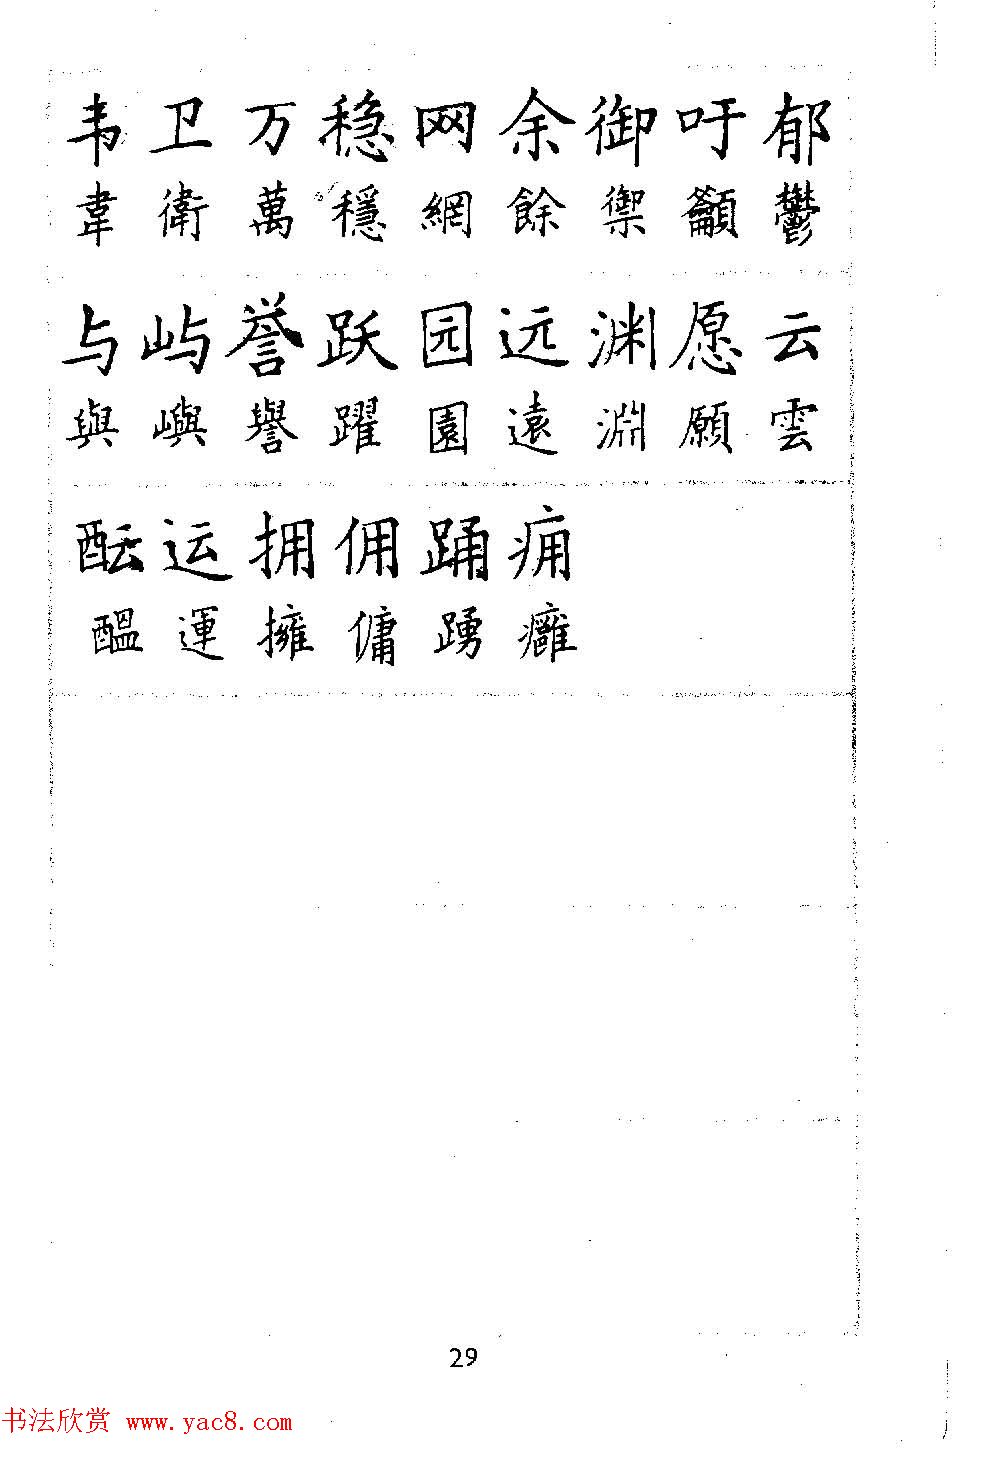 韦卫万稳网余御吁郁
韋衛萬穩網餘禦籲鬱
与屿誉跃园远渊愿云
與嶼譽躍園遠淵願雲
酝运拥佣踊痈
醞運擁傭踴癰
29
书法欣赏 www.yac8.com